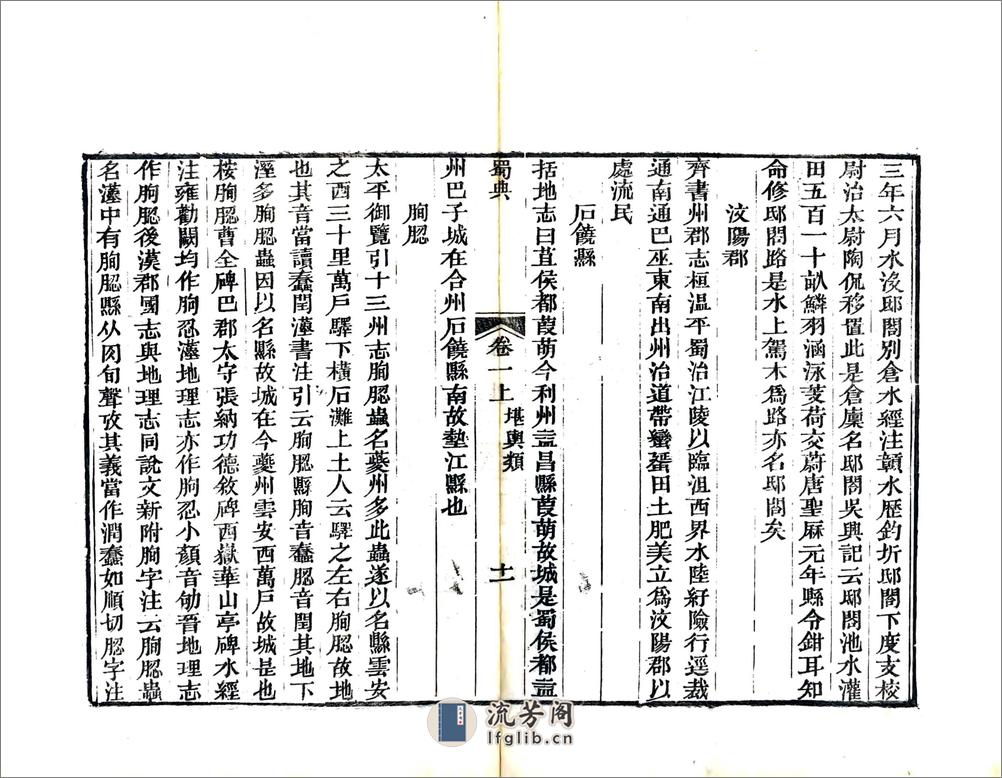 三年六月水沒邸閣別倉水經注贛水歷釣圻邸閣下度支校
尉治太尉陶侃移置此是倉廩名邸閣吳興記云邸閣池水灌
田五百一十畝鱗羽涵泳芰荷交蔚唐聖厤元年縣令鉗耳知
命修邸閣路是水上駕木爲路亦名邸閣矣
汶陽郡
齊書州郡志桓溫平蜀治江陵以臨沮西界水陸紆險行逕裁
通南通巴巫東南出州治道帶蠻蜑田土肥美立爲汶陽郡以
處流民
石饒縣
括地志曰苴侯都葭萌今利州益昌縣葭萌故城是蜀侯都益
蜀典
卷一上
堪輿類
十一
州巴子城在合州石饒縣南故墊江縣也
朐䏰
太平御覽引十三州志朐䏰蟲名夔州多此蟲遂以名縣雲安
之西三十里萬戶驛下橫石灘上土人云驛之左右朐䏰故地
也其音當讀蠢閏漢書注引云朐䏰縣朐音蠢䏰音閏其地下
溼多朐䏰蟲因以名縣故城在今夔州雲安西萬戶故城是也
桉朐䏰曹全碑巴郡太守張納功德敘碑西嶽華山亭碑水經
注雍勸闕均作朐忍漢地理志亦作朐忍小顏音劬晉地理志
作朐䏰後漢郡國志與地理志同說文新附朐字注云朐䏰蟲
名漢中有朐䏰縣从肉旬聲攷其義當作潤蠢如順切䏰字注
流芳阁
lfglib.cn